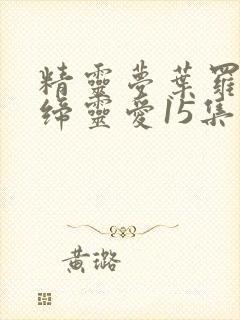 精靈夢葉羅
締靈愛15集
黃璐